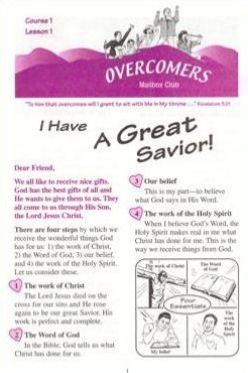 Course 1
Lesson 1
OVERCOMERS
Mailbox Club
"To him that overcomes will I grant to sit with Me in My throne . . ." Revelation 3:21
I Have
A Great
Savior!
Dear Friend,
We all like to receive nice gifts.
God has the best gifts of all and
He wants to give them to us. They
all come to us through His Son,
the Lord Jesus Christ.
There are four steps by which we
receive the wonderful things God
has for us: 1) the work of Christ,
2) the Word of God, 3) our belief,
and 4) the work of the Holy Spirit.
Let us consider these.
1 The work of Christ
The Lord Jesus died on the
cross for our sins and He rose
again to be our great Savior. His
work is perfect and complete.
2 The Word of God
In the Bible, God tells us what
Christ has done for us.
3 Our belief
This is my part—to believe
what God says in His Word.
4 The work of the Holy Spirit
When I believe God's Word, the
Holy Spirit makes real in me what
Christ has done for me. This is the
way we receive things from God.
The work of Christ
The Word
of God
Four
Essentials
My belief
The
work
of the
Holy
Spirit
1